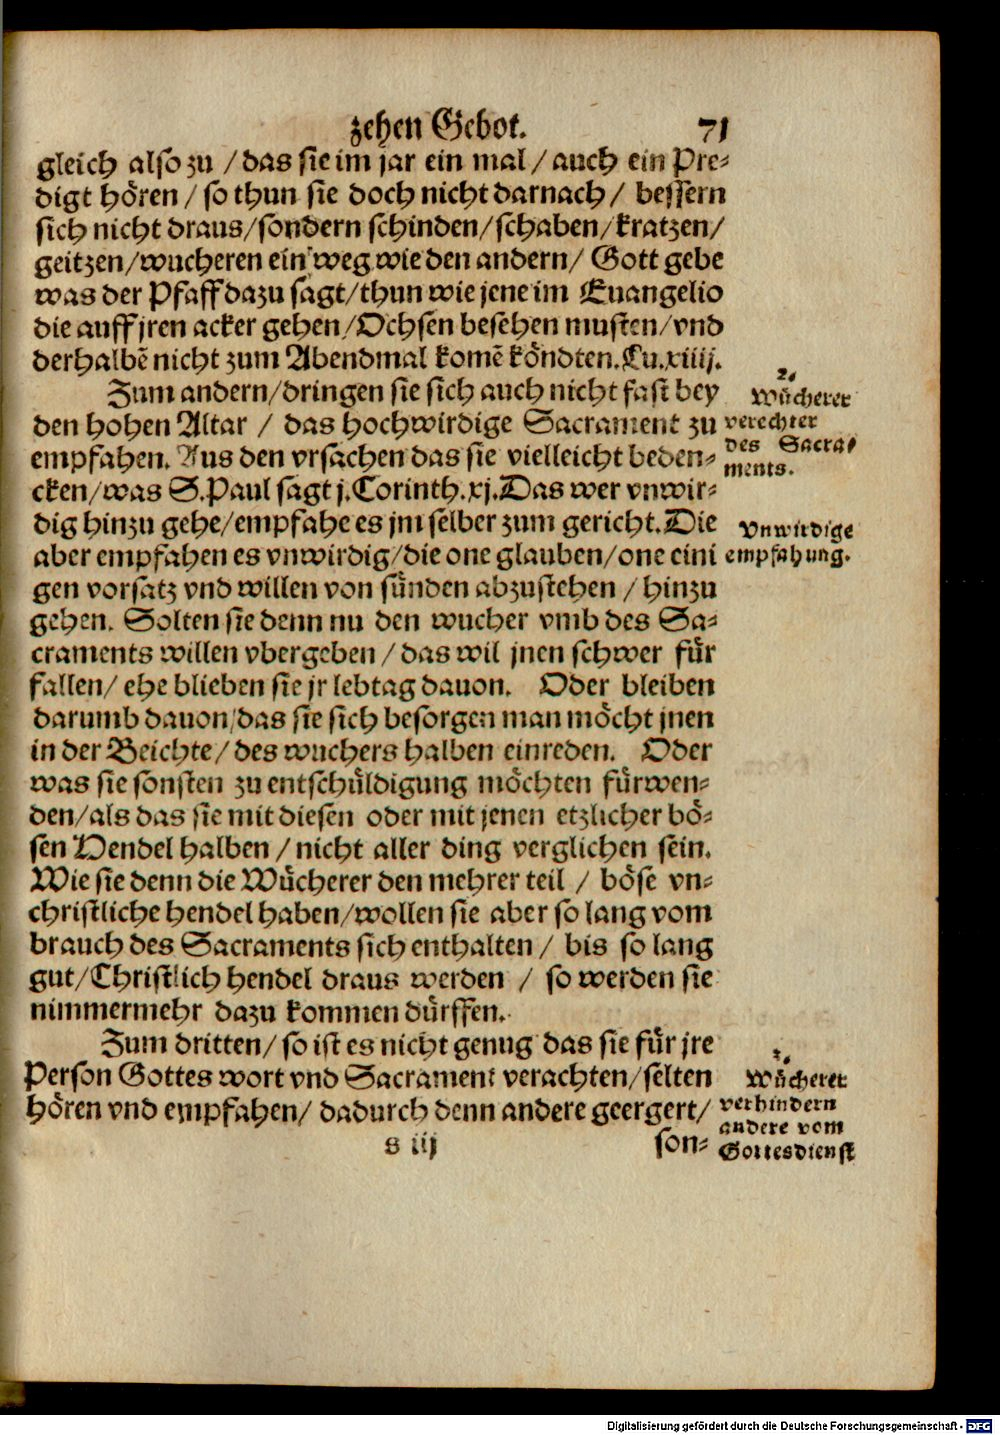 zehen Gebot. 71
gleich also zu / das sie im jar ein mal / auch ein Pre-
digt hören / so thun sie doch nicht darnach / bessern
sich nicht draus/sondern schinden/schaben/kratzen/
geitzen/wucheren ein weg wie den andern/ Gott gebe
was der Pfaff dazu sagt/thun wie jene im Euangelio
die auff jren acker gehen/Ochsen besehen musten/vnd
derhalbē nicht zum Abendmal komē köndten.Lu.xiiij.
Zum andern/dringen sie sich auch nicht fast bey
den hohen Altar / das hochwirdige Sacrament zu
empfahen. Aus den vrsachen das sie vielleicht beden-
cken/was S.Paul sagt j.Corinth.xj.Das wer vnwir-
dig hinzu gehe/empfahe es jm selber zum gericht.Die
aber empfahen es vnwirdig/die one glauben/one eini
gen vorsatz vnd willen von sünden abzustehen / hinzu
gehen. Solten sie denn nu den wucher vmb des Sa-
craments willen vbergeben / das wil jnen schwer für
fallen/ ehe blieben sie jr lebtag dauon. Oder bleiben
darumb dauon/das sie sich besorgen man möcht jnen
in der Beichte/ des wuchers halben einreden. Oder
was sie sonsten zu entschüldigung möchten fürwen-
den/als das sie mit diesen oder mit jenen etzlicher bö-
sen Hendel halben / nicht aller ding verglichen sein.
Wie sie denn die Wücherer den mehrer teil / böse vn-
christliche hendel haben/wollen sie aber so lang vom
brauch des Sacraments sich enthalten / bis so lang
gut/Christlich hendel draus werden / so werden sie
nimmermehr dazu kommen dürffen.
Zum dritten/ so ist es nicht genug das sie für jre
Person Gottes wort vnd Sacrament verachten/selten
hören vnd empfahen/ dadurch denn andere geergert/
s iij son-
2.
Wücherer
verechter
des Sacra-
ments.
Vnwirdige
empfahung.
3.
Wücherer
verhindern
andere vom
Gottesdienst
Digitalisierung gefördert durch die Deutsche Forschungsgemeinschaft - DFG